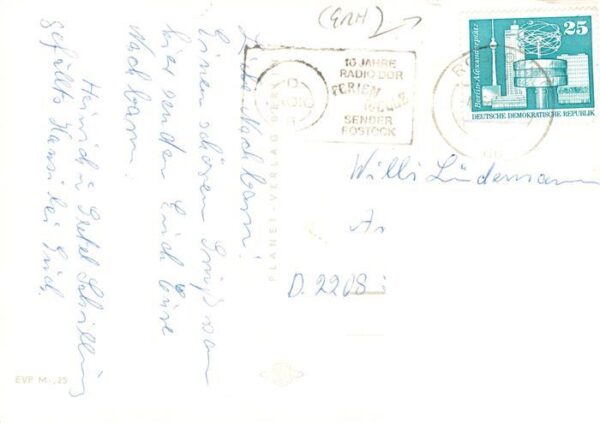 Liebe Nachbarn!
Einen schönen Gruß von
hier senden Euch Eure
Nachbarn.
Heinrich u Gretel Schilling
gefällts Hansi bei Euch.
(GRH)
10 JAHRE
RADIO DDR
FERIEN
WELLE
SENDER
ROSTOCK
25
Berlin, Alexanderplatz
DEUTSCHE DEMOKRATISCHE REPUBLIK
Willi Lüdemann
An
D. 2208
PLANET-VERLAG BERLIN
EVP M -,25